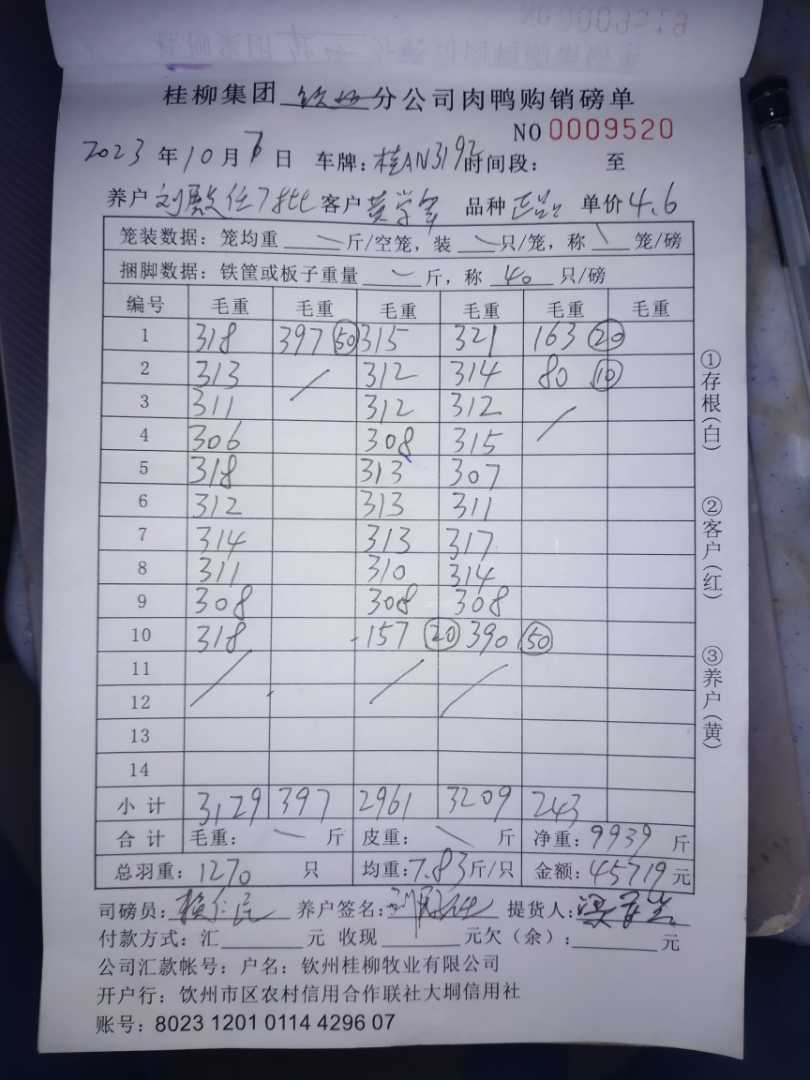 NO 0009519
桂柳集团 钦州 分公司肉鸭购销磅单
NO 0009520
2023 年 10 月 7 日 车牌：桂AN3192 时间段： 至
养户 刘 任7批 客户 黄学军 品种 正品 单价 4.6
笼装数据：笼均重 斤/空笼，装 只/笼，称 笼/磅
捆脚数据：铁筐或板子重量 斤，称 40 只/磅
编号 毛重 毛重 毛重 毛重 毛重 毛重
1 318 397 50 315 321 163 20
2 313 312 314 80 10
3 311 312 312
4 306 308 315
5 318 313 307
6 312 313 311
7 314 313 317
8 311 310 314
9 308 308 308
10 318 157 20 390 50
11
12
13
14
小计 3129 397 2961 3209 243
合计 毛重： 斤 皮重： 斤 净重：9939 斤
总羽重：1270 只 均重：7.83 斤/只 金额：45719 元
司磅员： 养户签名： 提货人：
付款方式：汇 元 收现 元欠（余）： 元
公司汇款帐号：户名：钦州桂柳牧业有限公司
开户行：饮州市区农村信用合作联社大垌信用社
账号：8023 1201 0114 4296 07
①存根（白）
②客户（红）
③养户（黄）